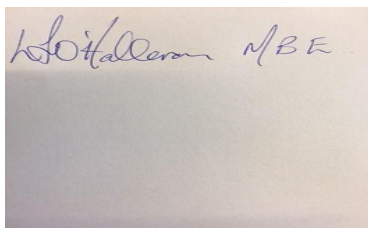 O'Halloran MBE